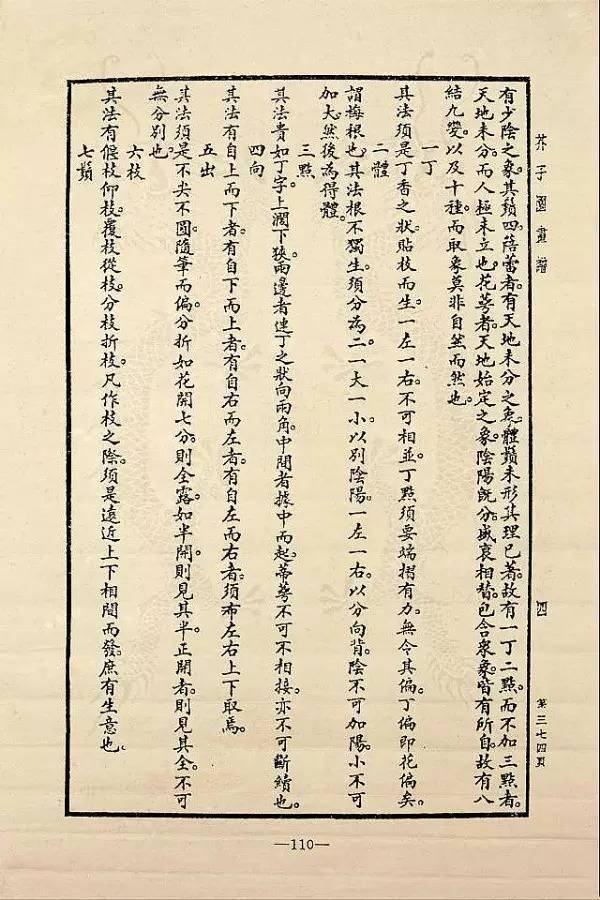 芥子園畫譜
四
第三七四頁
有少陰之象。其鬚四。蓓蕾者。有天地未分之象。體鬚未形。其理已著。故有一丁二點。而不加三點者。
天地未分。而人極未立也。花萼者。天地始定之象。陰陽旣分。盛衰相替。包含衆象。皆有所自。故有八
結九變。以及十種。而取象莫非自然而然也。
一丁
其法須是丁香之狀。貼枝而生。一左一右。不可相並。丁點須要端摺有力。無令其偏。丁偏即花偏矣。
二體
謂梅根也。其法根不獨生。須分為二。一大一小。以別陰陽。一左一右。以分向背。陰不可加陽。小不可
加大。然後為得體。
三點
其法貴如丁字。上濶下狹。兩邊者連丁之狀。向兩角。中間者據中而起。蒂萼不可不相接。亦不可斷續也。
四向
其法有自上而下者。有自下而上者。有自右而左者。有自左而右者。須布左右上下取焉。
五出
其法須是不尖不圓。隨筆而偏分折。如花開七分。則全露。如半開。則見其半。正開者。則見其全。不可
無分別也。
六枝
其法有偃枝。仰枝。覆枝。從枝。分枝。折枝。凡作枝之際。須是遠近上下相間而發。庶有生意也。
七鬚
—110—